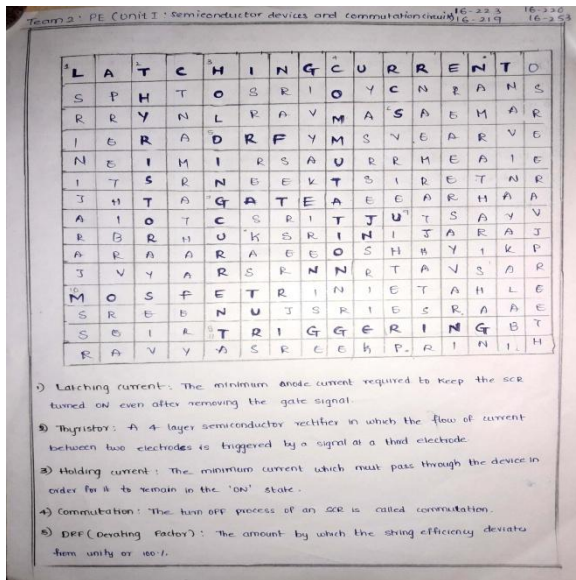 Team 2: PE (Unit I: Semiconductor devices and commutation circuits) 16-223 16-226
16-219 16-253
L A T C H I N G C U R R E N T O
S P H T O S R I O Y C N R A N S
R R Y N L R A V M A S A E M A R
I E R A D R F Y M S V E A R V E
N E I M I R S A U R R M E A I E
I T S R N E E K T S I R E T N R
J H T A G A T E A E E A R H A A
A I O T C S R I T J U T S A Y V
R B R H U K S R I N I J A R A J
A R A A R A E E O S H H Y I K P
J V Y A R S R N N R T A V S A R
M O S F E T R I N I E T A H L E
S R E E N U J S R I E S R A A E
S E I R T R I G G E R I N G B T
R A V Y A S R E E K P R I N I H
1) Latching current: The minimum anode current required to keep the SCR
turned ON even after removing the gate signal.
2) Thyristor: A 4 layer semiconductor rectifier in which the flow of current
between two electrodes is triggered by a signal at a third electrode
3) Holding current: The minimum current which must pass through the device in
order for it to remain in the 'ON' state.
4) Commutation: The turn OFF process of an SCR is called commutation.
5) DRF (Derating Factor): The amount by which the string efficiency deviates
from unity or 100%.